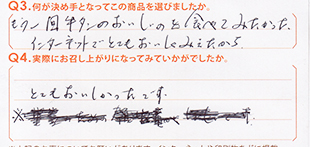 Q3.何が決め手となってこの商品を選びましたか。
もう一回牛タンのおいしいのを食べてみたかった。
インターネットでとてもおいしくみえたから
Q4.実際にお召し上がりになってみていかがでしたか。
とてもおいしかったです。
※